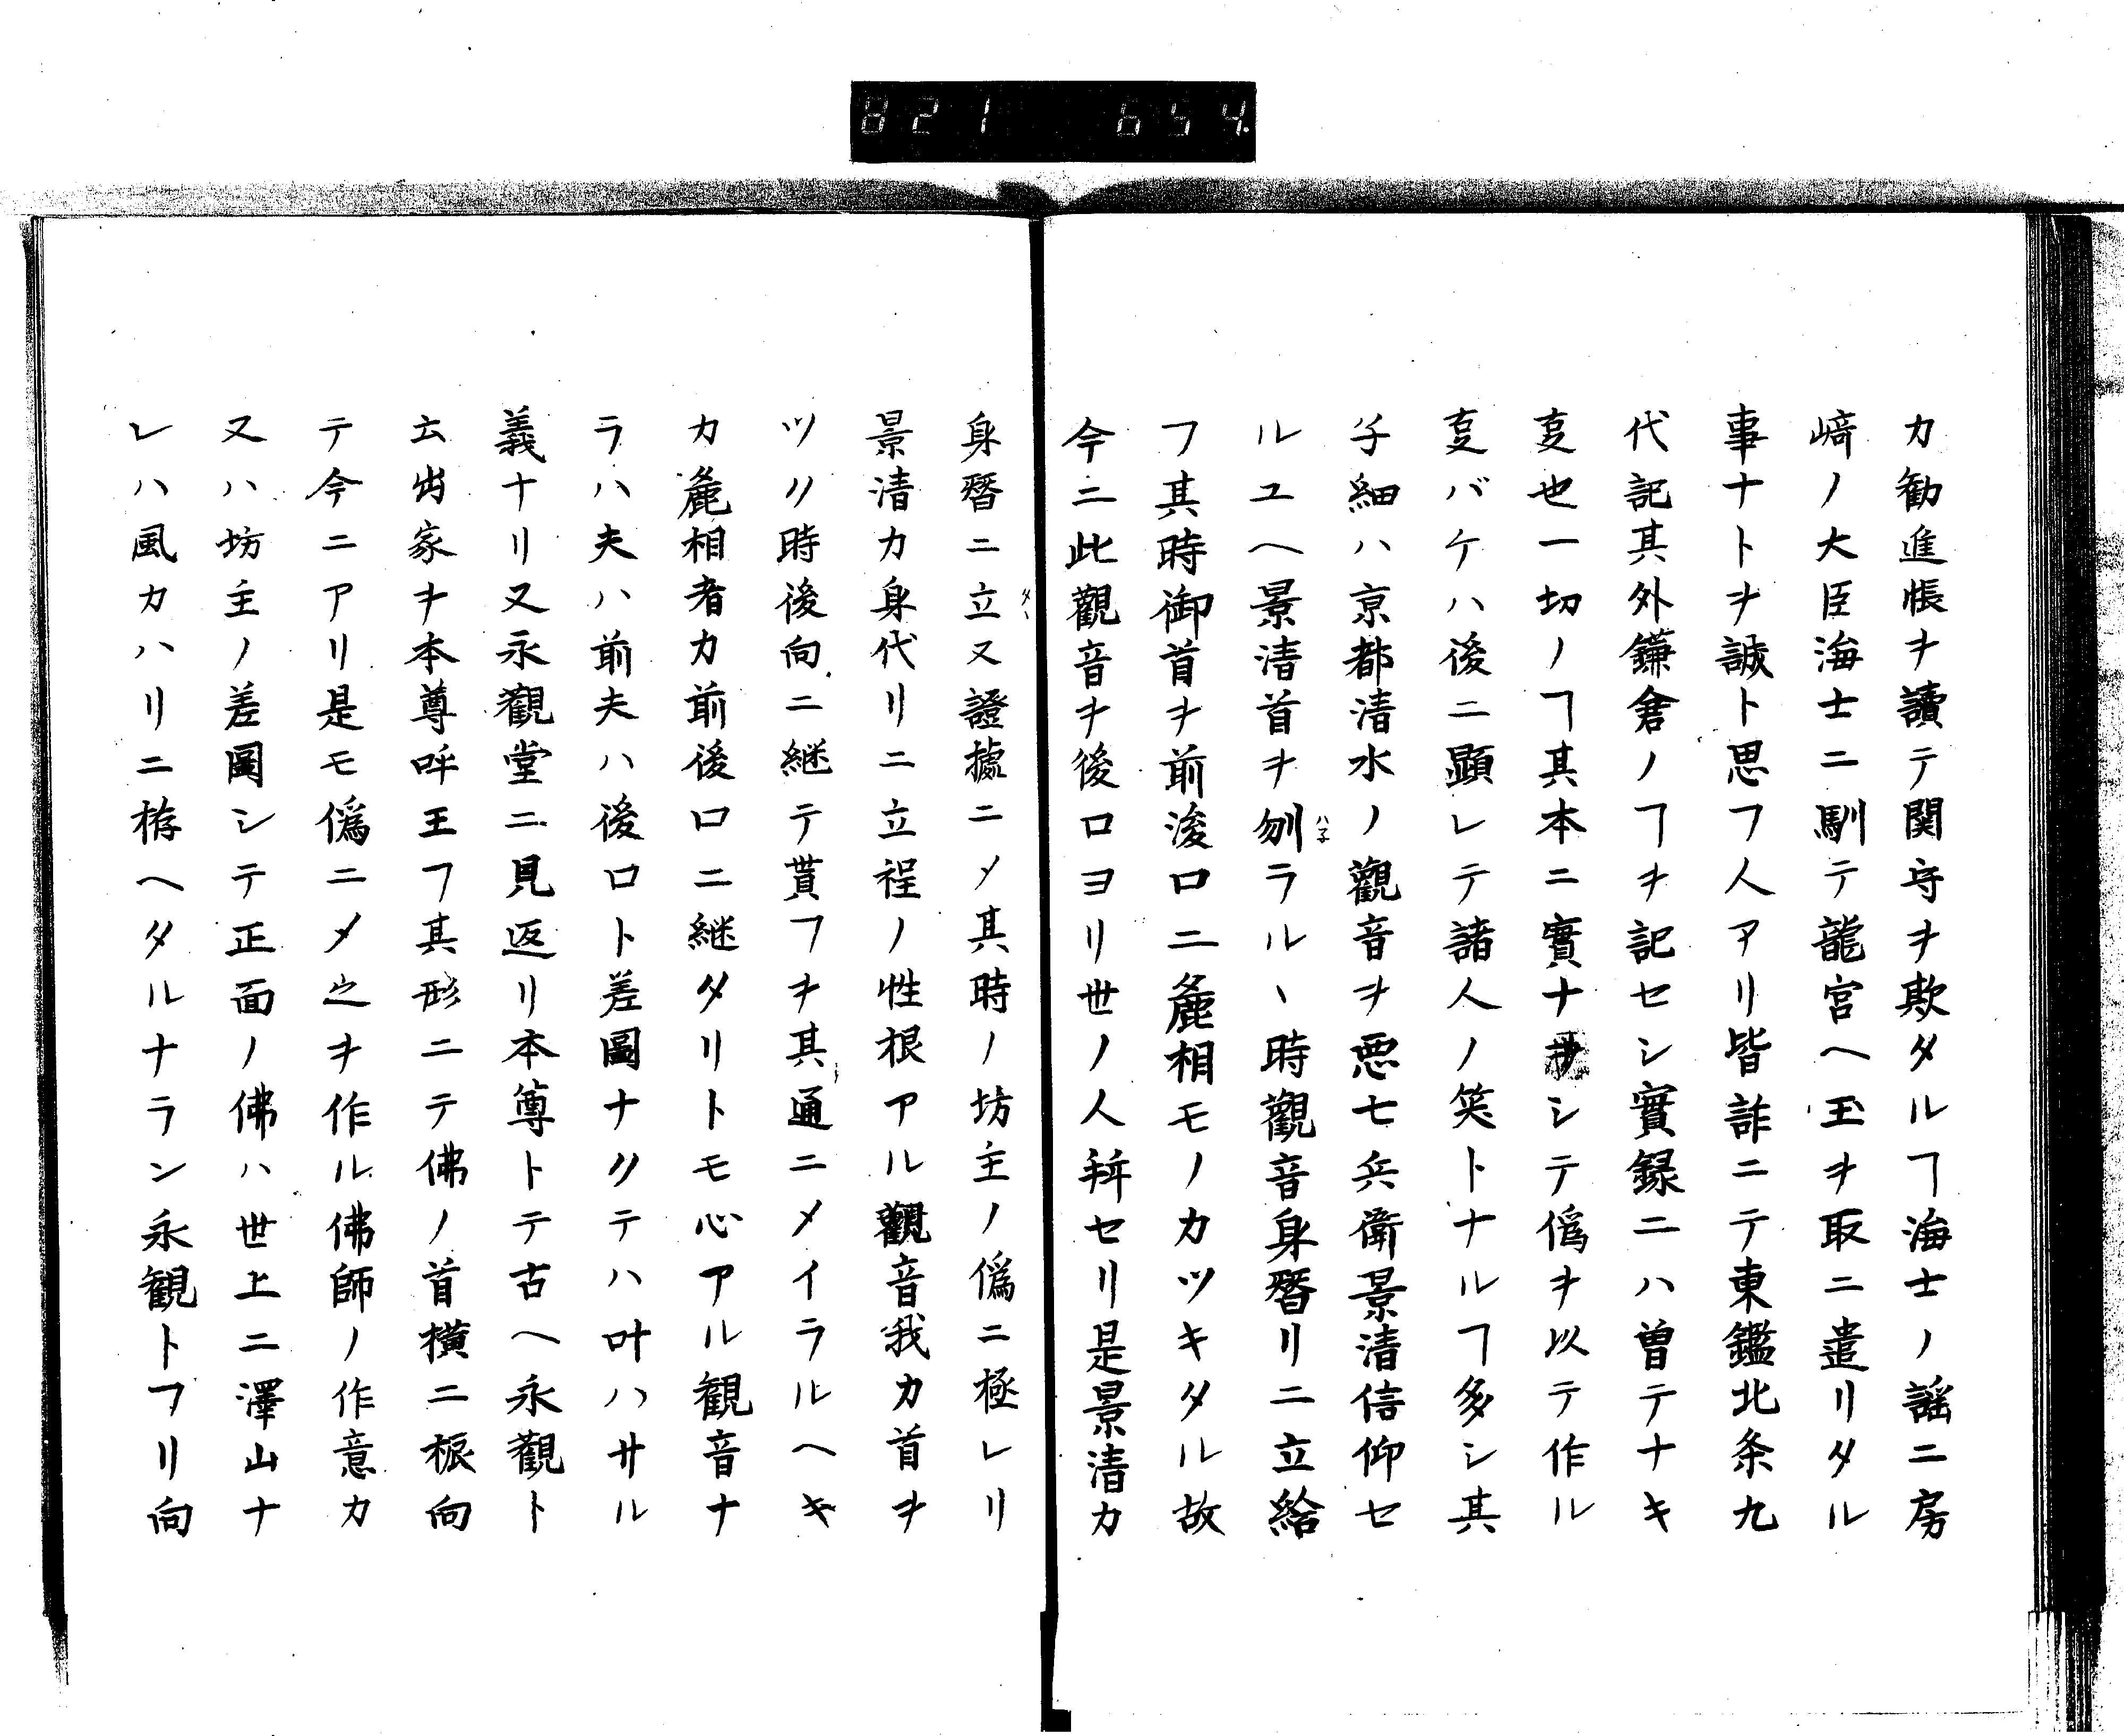 821 654.
カ勧進帳ヲ讀テ関守ヲ欺タルヿ海士ノ謡ニ房
﨑ノ大臣海士ニ馴テ龍宮ヘ玉ヲ取ニ遣リタル
事ナトヲ誠ト思フ人アリ皆詐ニテ東鑑北条九
代記其外鎌倉ノヿヲ記セシ實録ニハ曽テナキ
叓也一切ノヿ其本ニ實ナ シテ僞ヲ以テ作ル
叓バケハ後ニ顕レテ諸人ノ笑トナルヿ多シ其
子細ハ京都清水ノ觀音ヲ悪七兵衛景清信仰セ
ルユヘ景清首ヲ刎ラルヽ時觀音身暦リニ立給
ハネ
フ其時御首ヲ前後ロニ麁相モノカツキタル故
今ニ此觀音ヲ後ロヨリ世ノ人拜セリ是景清カ
身暦ニ立又證據ニメ其時ノ坊主ノ僞ニ極レリ
タヽ
景清カ身代リニ立程ノ性根アル觀音我カ首ヲ
ツク時後向ニ継テ貰フヲ其通ニメイラルヘキ
カ麁相者カ前後ロニ継タリトモ心アル観音ナ
ラハ夫ハ前夫ハ後ロト差圖ナクテハ叶ハサル
義ナリ又永觀堂ニ見返リ本尊トテ古ヘ永觀ト
云出家ヲ本尊呼玉フ其形ニテ佛ノ首横ニ振向
テ今ニアリ是モ僞ニメ之ヲ作ル佛師ノ作意カ
又ハ坊主ノ差圖シテ正面ノ佛ハ世上ニ澤山ナ
レハ風カハリニ拵ヘタルナラン永観トフリ向